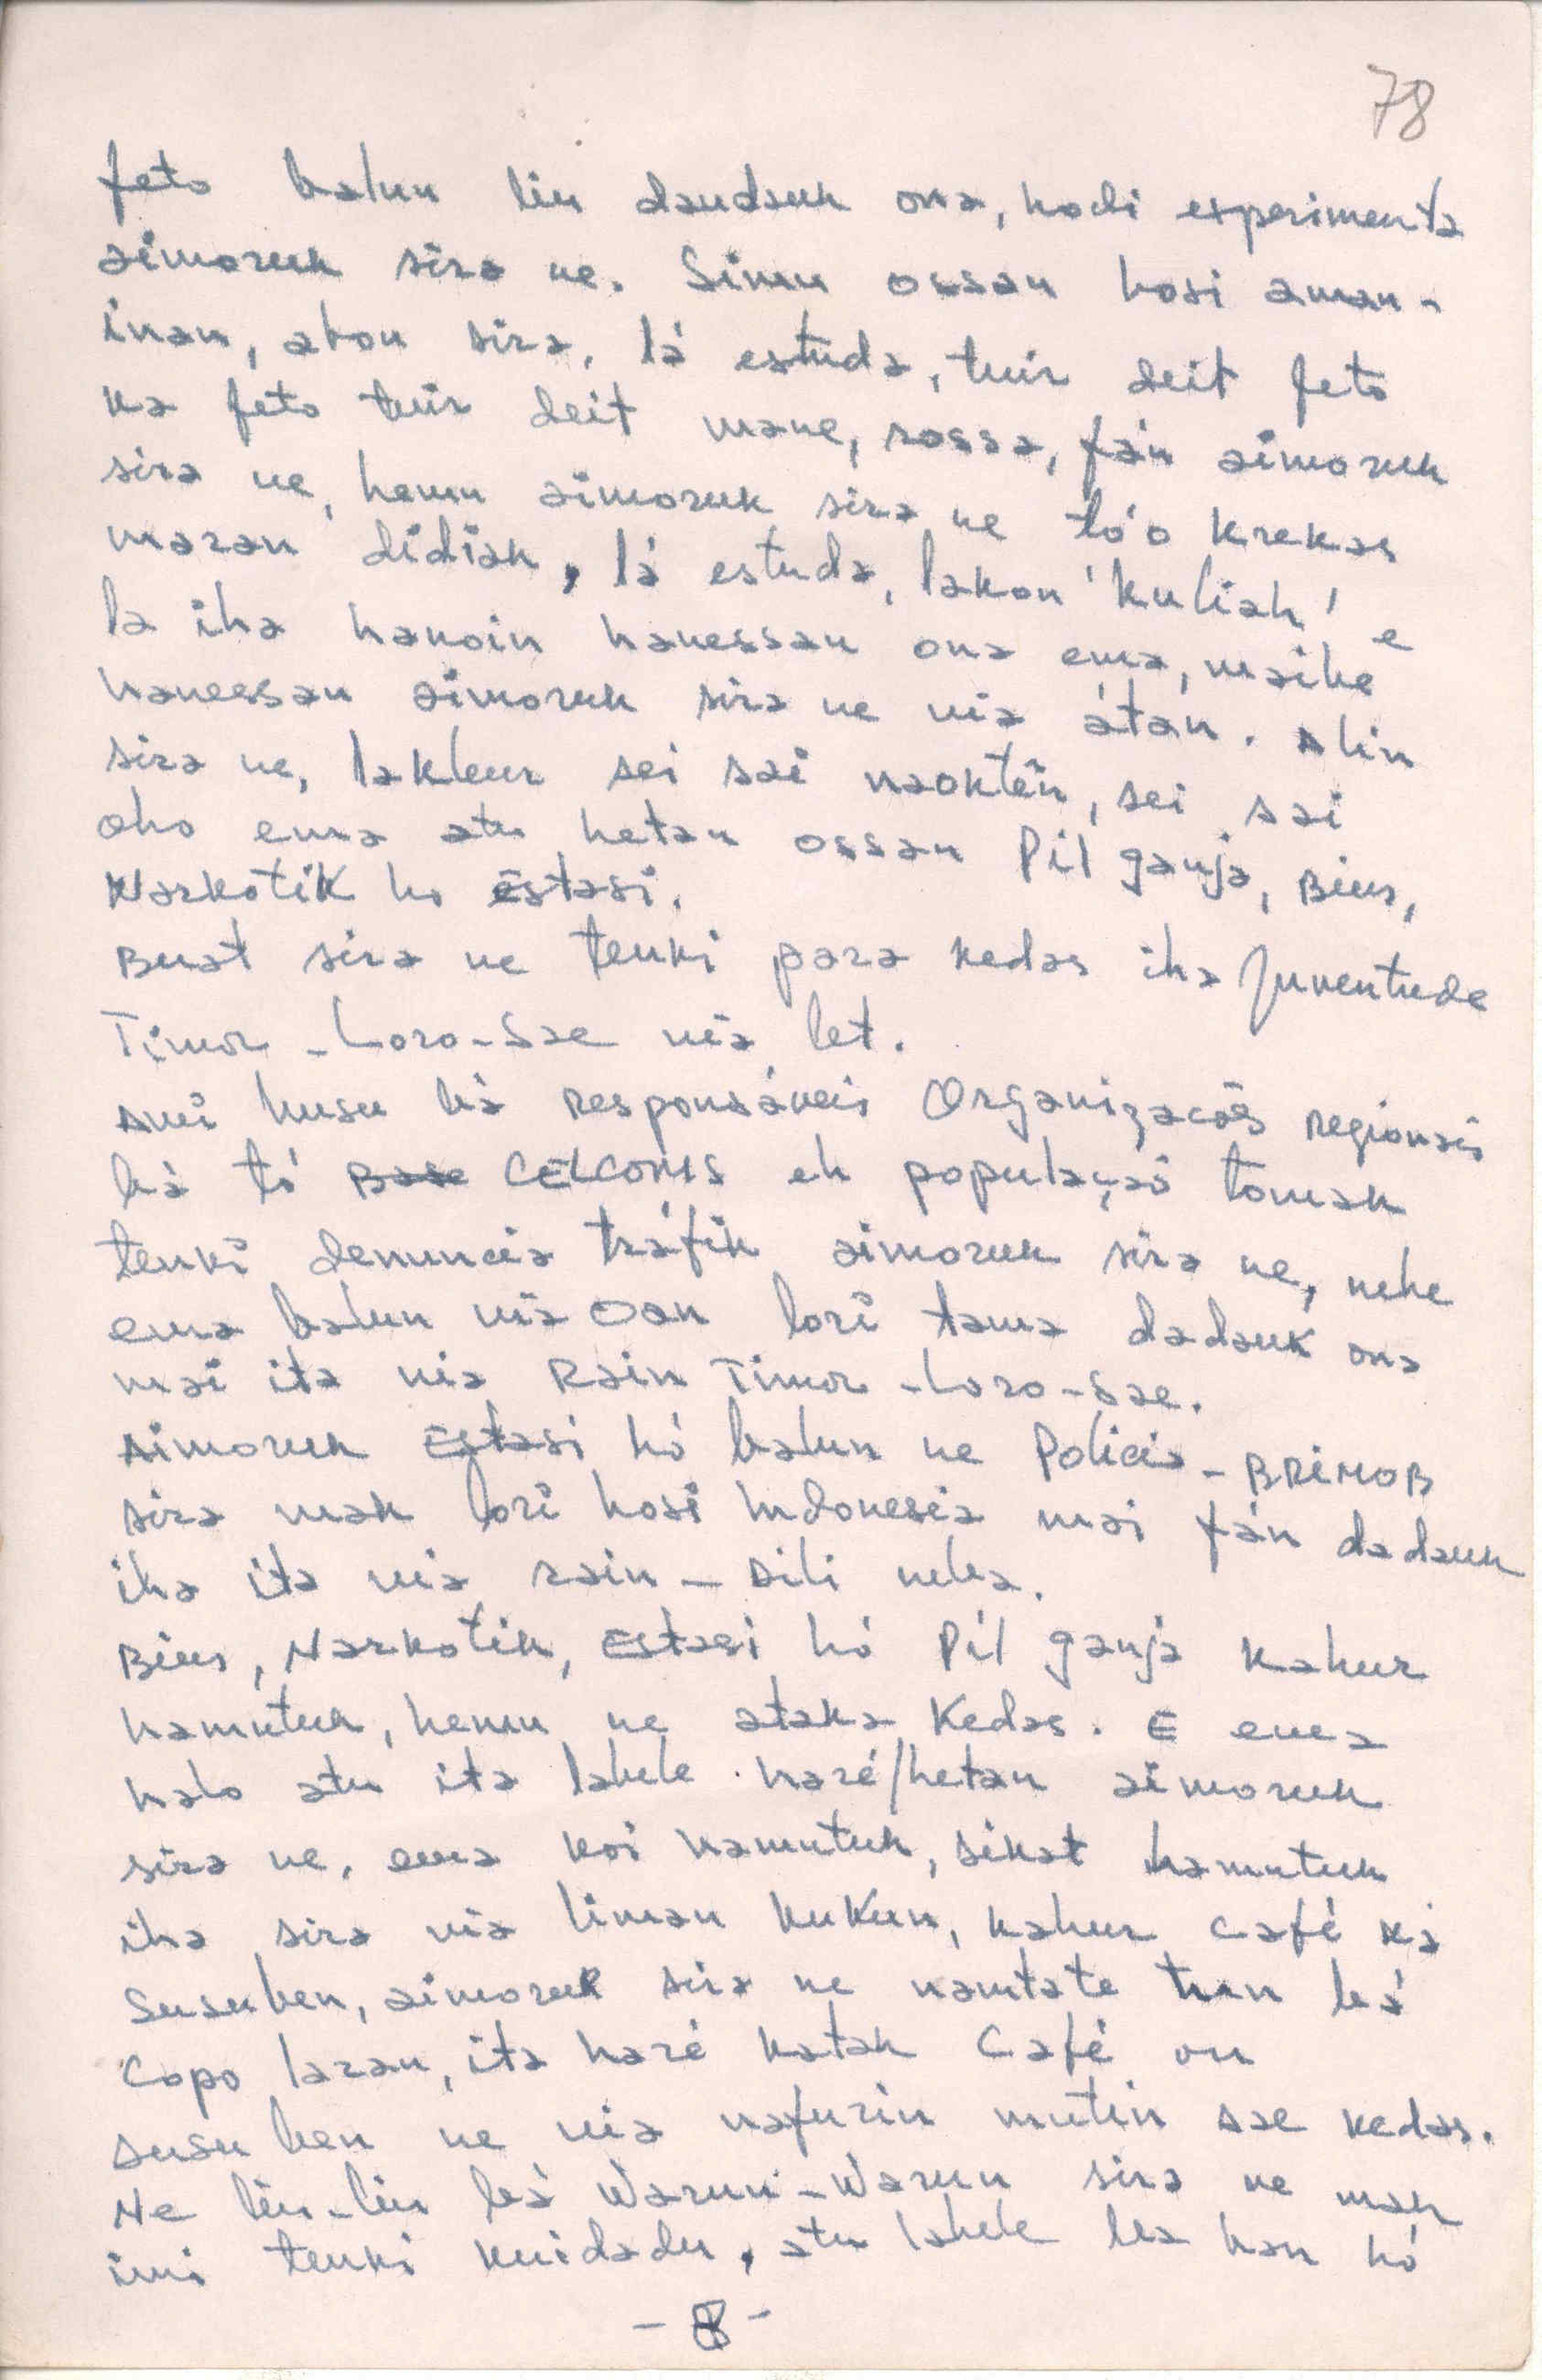 78
feto balun liu daudauk ona, hodi experimenta
aimoruk sira ne. Simu ossan hosi aman-
inan, abon sira, lá estuda, tuir deit feto
ka feto tuir deit mane, sossa, fán aimoruk
sira ne, hemu aimoruk sira ne tó'o krekas
maran didiak, lá estuda, lakon 'kuliah' e
la iha hanoin hanessan ona ema, maibe
hanessan aimoruk sira ne nia átan. Alin
sira ne, lakleur sei sai naoktén, sei sai
oho ema atu hetan ossan Pil ganja, Bius,
Narkotik ho Estasi.
Buat sira ne tenki para kedas iha Juventude
Timor-Loro-Sae nia let.
Ami husu bá responsáveis Organizações regionais
bá tó Base CELCOMS eh população tomak
tenki denuncia tráfik aimoruk sira ne, nebe
ema balun nia oan lori tama dadauk ona
mai ita nia Rain Timor-Loro-Sae.
Aimoruk Estasi hó balun ne Policia-BRIMOB
sira mak lori hosi Indonesia mai fán dadauk
iha ita nia rain - Dili neba.
Bius, Narkotik, Estasi hó Pil ganja kahur
hamutuk, hemu ne ataka kedas. E ema
halo atu ita labele haré/hetan aimoruk
sira ne, ema koi hamutuk, sikat hamutuk
iha sira nia liman kukun, kahur café ká
Susuben, aimoruk sira ne namtate tun bá
Copo laran, ita haré katak Café ou
susu ben ne nia nafurin mutin sae kedas.
Ne liu-liu bá Warun-Warun sira ne mak
imi tenki kuidadu, atu labele ba han hó
-8-